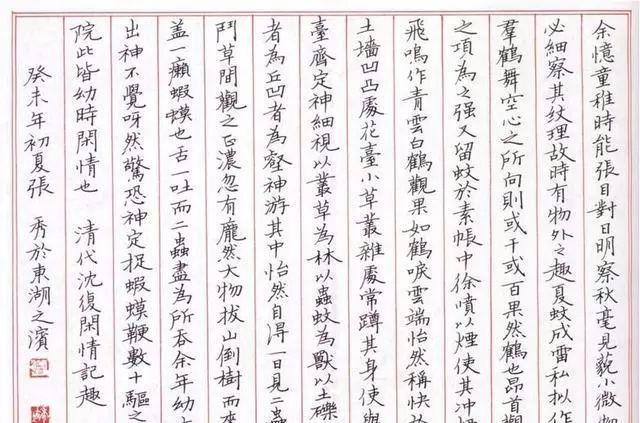 余憶童稚時能張目對日明察秋毫見藐小微
必細察其紋理故時有物外之趣夏蚊成雷私拟作
羣鶴舞空心之所向則或千或百果然鶴也昂首觀
之項為之强又留蚊於素帳中徐噴以煙使其冲
飛鳴作青雲白鶴觀果如鶴唳雲端怡然稱快
土墻凹凸處花臺小草叢雜處常蹲其身使與
臺齊定神細視以叢草為林以蟲蚊為獸以土礫
者為丘凹者為壑神游其中怡然自得一日見二蟲
鬥草間觀之正濃忽有龐然大物拔山倒樹而來
盖一癩蝦蟆也舌一吐而二蟲盡為所吞余年幼
出神不覺呀然驚恐神定捉蝦蟆鞭數十驅之
院此皆幼時閑情也 清代沈復閑情記趣
癸未年初夏張 秀於東湖之濱